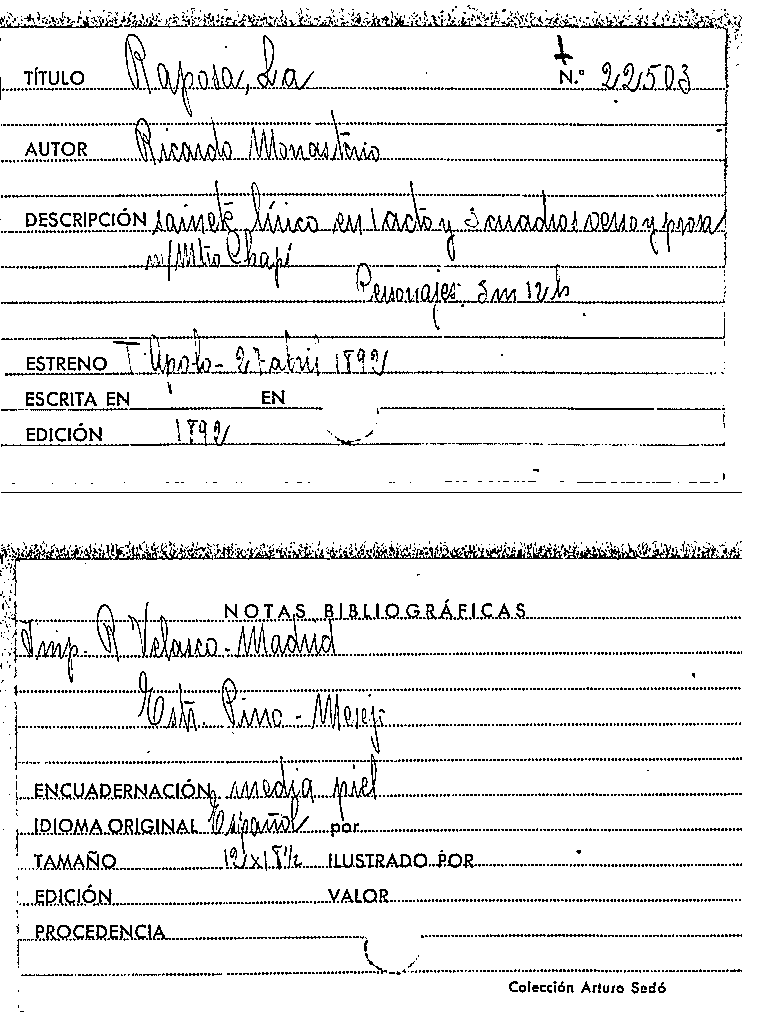 TÍTULO Raposa, La N.º 22503
AUTOR Ricardo Monasterio
DESCRIPCIÓN sainete lírico en 1 acto y 3 cuadros verso y prosa
m/ Mtro Chapí
Personajes, 3m 12h
ESTRENO T. Apolo - 27 abril 1892
ESCRITA EN EN
EDICIÓN 1892
NOTAS BIBLIOGRÁFICAS
Imp. R Velasco - Madrid
Estr. Pino - Mesejo
ENCUADERNACIÓN media piel
IDIOMA ORIGINAL Español por
TAMAÑO 12x18½ ILUSTRADO POR
EDICIÓN VALOR
PROCEDENCIA
Colección Arturo Sedó